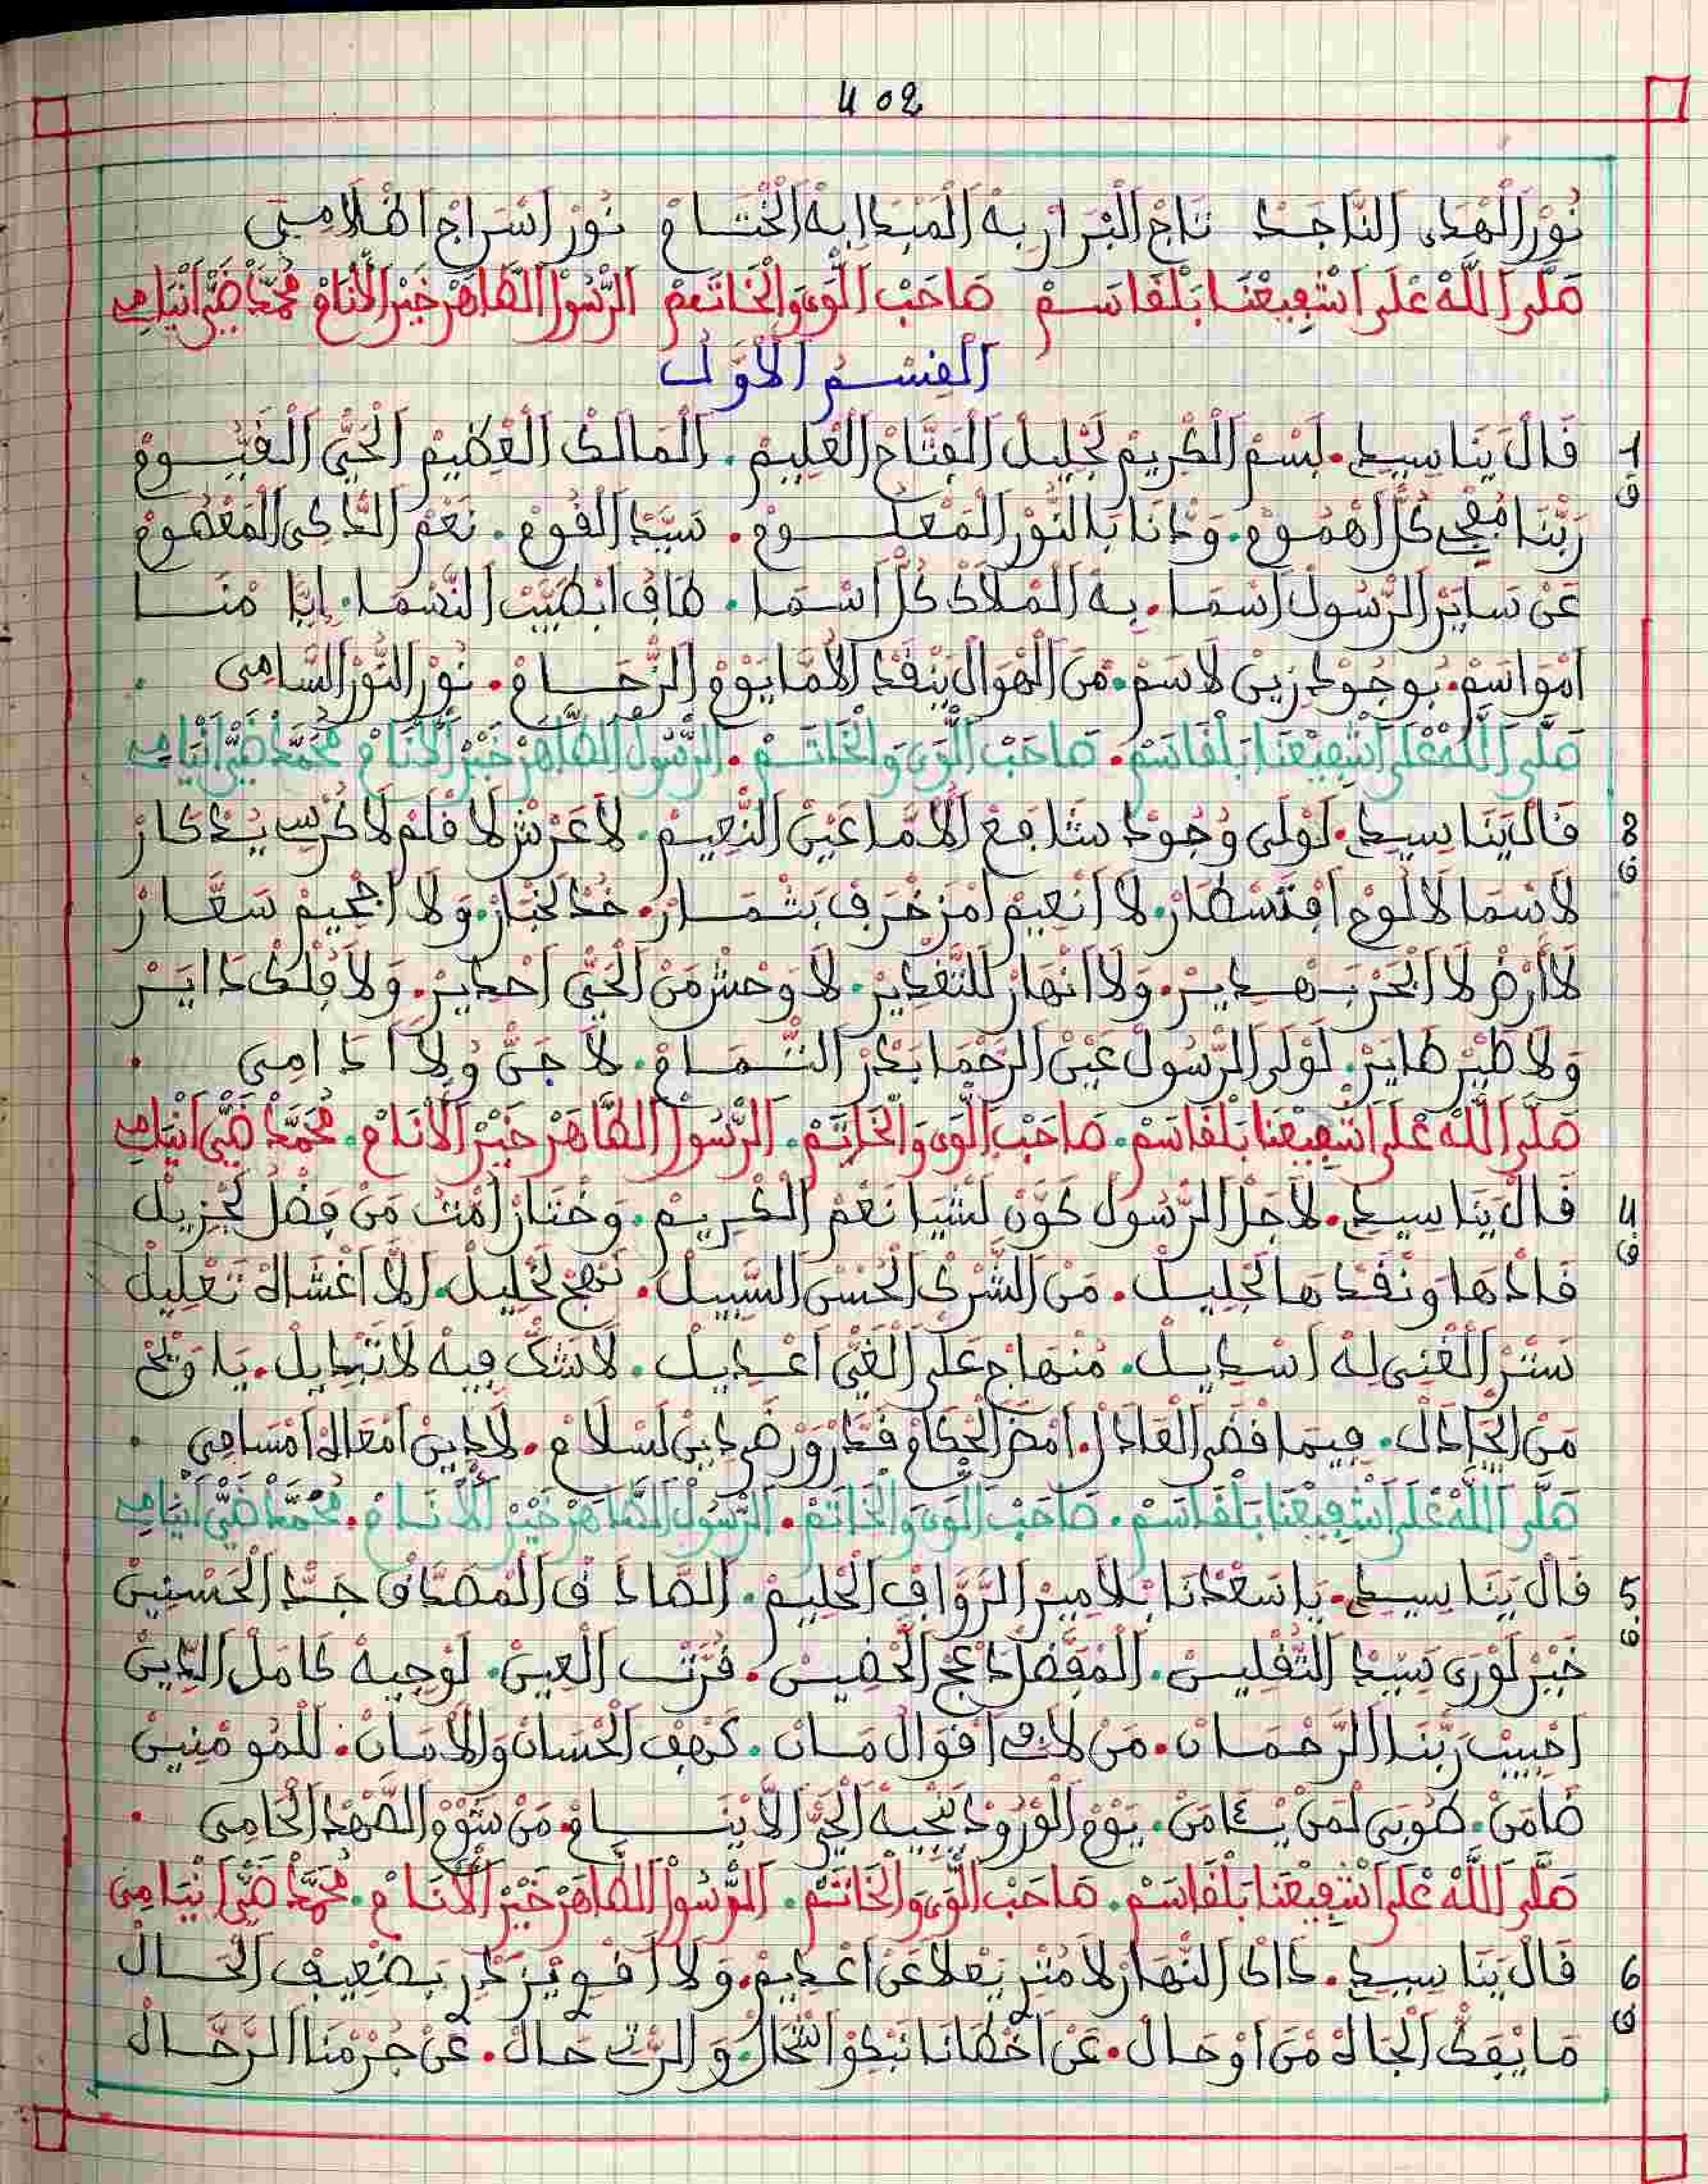 402
نُورْ الْهْدَى النَّاجَدْ تَاجْ الْبْرَارْ بِهْ الْمَبْدَا بِهْ الْخْتَامْ نُورْ اسْرَاجْ اظْلَامِي
صَلَّى اللَّهْ عْلَى اشْفِيعْنَا بَلْقَاسَمْ صَاحَبْ الْوَى وَالْخَاتَمْ الرَّسُولْ الطَّاهَرْ خَيْرْ الْأَنَامْ مُحَمَّدْ ضَيّْ انْيَامِي
القِسْمُ الأوّل
1 قَالْ يَنَا سِيدِ. بَسْمْ الْكْرِيمْ لَجْلِيلْ الْفَتَّاحْ الْعْلِيمْ. الْمَالَكْ الْعْظِيمْ الْحَيّْ الْقَيُّومْ
ف رَبّْنَا مْفَجِي كُلّْ اهْمُومْ. وَدْنَا بَالنُّورْ الْمَعْلُومْ. سَيَّدْ الْقُومْ. نَعْمْ الذَّكِي الْمَعْصُومْ
عَنْ سَايَرْ الرَّسُولْ اسْمَا. بِهْ الْمْلَاكْ كُلّْ اسْمَا. طَافْ ابْطِيبْ النَّسْمَا. إِيَّا مْنَا
امْوَاسَمْ. بُوجُودْ زِينْ لَاسَمْ. مْنَ الْهْوَالْ يَنْقَدْ الْأُمَّا يَوْمْ الزّْحَامْ. نُورْ النُّورْ السَّامِي
صَلَّى اللَّهْ عْلَى اشْفِيعْنَا بَلْقَاسَمْ. صَاحَبْ الْوَى وَالْخَاتَمْ. الرَّسُولْ الطَّاهَرْ خَيْرْ الْأَنَامْ مُحَمَّدْ ضَيّْ انْيَامِي
3 قَالْ يَنَا سِيدِ. لَوْلَى وُجُودْ شَافَعْ الْأُمَّا عَيْنْ النّْعِيمْ. لَا عَرْشْ لَا قْلَمْ لَا كُرْسِي يُدْكَارْ
ف لَا سْمَا لَا لُوحْ افْتَسْطَارْ. لَا انْعِيمْ امْزَخْرَفْ بَثْمَارْ. خُدْ لَخْبَارْ. وَلَا اجْحِيمْ سَعَّارْ
لَا أَرْضْ لَا ابْحَرْ بَهْدِيرْ. وَلَا انْهَارْ لَلتَّغْدِيرْ. لَا وَحْشْ مَنْ الْحَيّْ احْدِيرْ. وَلَا فْلَكْ دَايَرْ
وَلَا طَيْرْ طَايَرْ. لَوْلَى الرَّسُولْ عَيْنْ الرَّحْمَا بَدْرْ التّْمَامْ. لَا جَنّْ وُلَا ادَامِي
صَلَّى اللَّهْ عْلَى اشْفِيعْنَا بَلْقَاسَمْ. صَاحَبْ الْوَى وَالْخَاتَمْ. الرَّسُولْ الطَّاهَرْ خَيْرْ الْأَنَامْ. مُحَمَّدْ ضَيّْ انْيَامِي
4 قَالْ يَنَا سِيدِ. لَاجَلْ الرَّسُولْ كَوَّنْ لَشْيَا نَعْمْ الْكْرِيمْ. وَخْتَارْ امْتُ مَنْ فَضْلُ لَجْزِيلْ
ف قَادْهَا وَنَقَدْهَا لَجْلِيلْ. مَنْ الشَّرْكْ الْحُسْنْ السّْبِيلْ. نَهْجْ لَخْلِيلْ. لَا اغْشَاهْ تَعْلِيلْ
سَتْرْ الْغْنِي لَهْ اسْدِيلْ. مُنْهَاجْ عْلَى الْغَيّْ اعْدِيلْ. لَا شَكّْ فِيهْ لَا تَبْدِيلْ. يَا وَيْحْ
مَنْ الْجَادَلْ. فِيمَا قْضَى الْعَادَلْ. امْضَى الْحْكَامْ قَدَّرْ وَرْضَى دِينْ لَسْلَامْ. لَا دِينْ امْعَاهْ امْسَامِي
صَلَّى اللَّهْ عْلَى اشْفِيعْنَا بَلْقَاسَمْ. صَاحَبْ الْوَى وَالْخَاتَمْ. الرَّسُولْ الطَّاهَرْ خَيْرْ الْأَنَامْ. مُحَمَّدْ ضَيّْ انْيَامِي
5 قَالْ يَنَا سِيدِ. يَا سَعْدْنَا بْلَامِيرْ الرَّوَّافْ الْحْلِيمْ. الصَّادَقْ الْمْصَدَّقْ جَدّْ الْحَسْنِينْ
ف خَيْرْ لَوْرَى سَيَّدْ الثَّقْلِينْ. الْمْفَضَّلْ دَعْجْ الْحْضِينْ. قُرَّتْ الْعِينْ. لَوْجِيهْ كَامَلْ الدِّينْ
احْبِيبْ رَبّْنَا الرَّحْمَانْ. مَنْ لَا فِي اقْوَالْ مَانْ. كَهْفْ الْحْسَانْ وَالْأَمَانْ. لَلْمُومْنِينْ
ضَامَنْ. طُوبَى لْمَنْ يْئَامَنْ. يَوْمْ الْوْرُودْ يَنْجِيهْ الْحَيّْ الَّا يْنَامْ. مَنْ شُومْ الصَّهْدْ الْحَامِي
صَلَّى اللَّهْ عْلَى اشْفِيعْنَا بَلْقَاسَمْ. صَاحَبْ الْوَى وَالْخَاتَمْ. الرَّسُولْ الطَّاهَرْ خَيْرْ الْأَنَامْ. مُحَمَّدْ ضَيّْ انْيَامِي
6 قَالْ يَنَا سِيدِ. دَاكْ النّْهَارْ لَا مُثْرِ يَعْلَا عَنْ اعْدِيمْ. وَلَا اقْوِي يَزْدَرِ بَضْعِيفْ الْحَالْ
ف مَا يْفَكّْ الْجَاهْ مْنَ اوْحَالْ. عَنْ اخْطَانَا نَبْكِوْا انْحَالْ. وَالرّْتِي حَالْ. عَنْ جُرْمْنَا الرَّحَّالْ